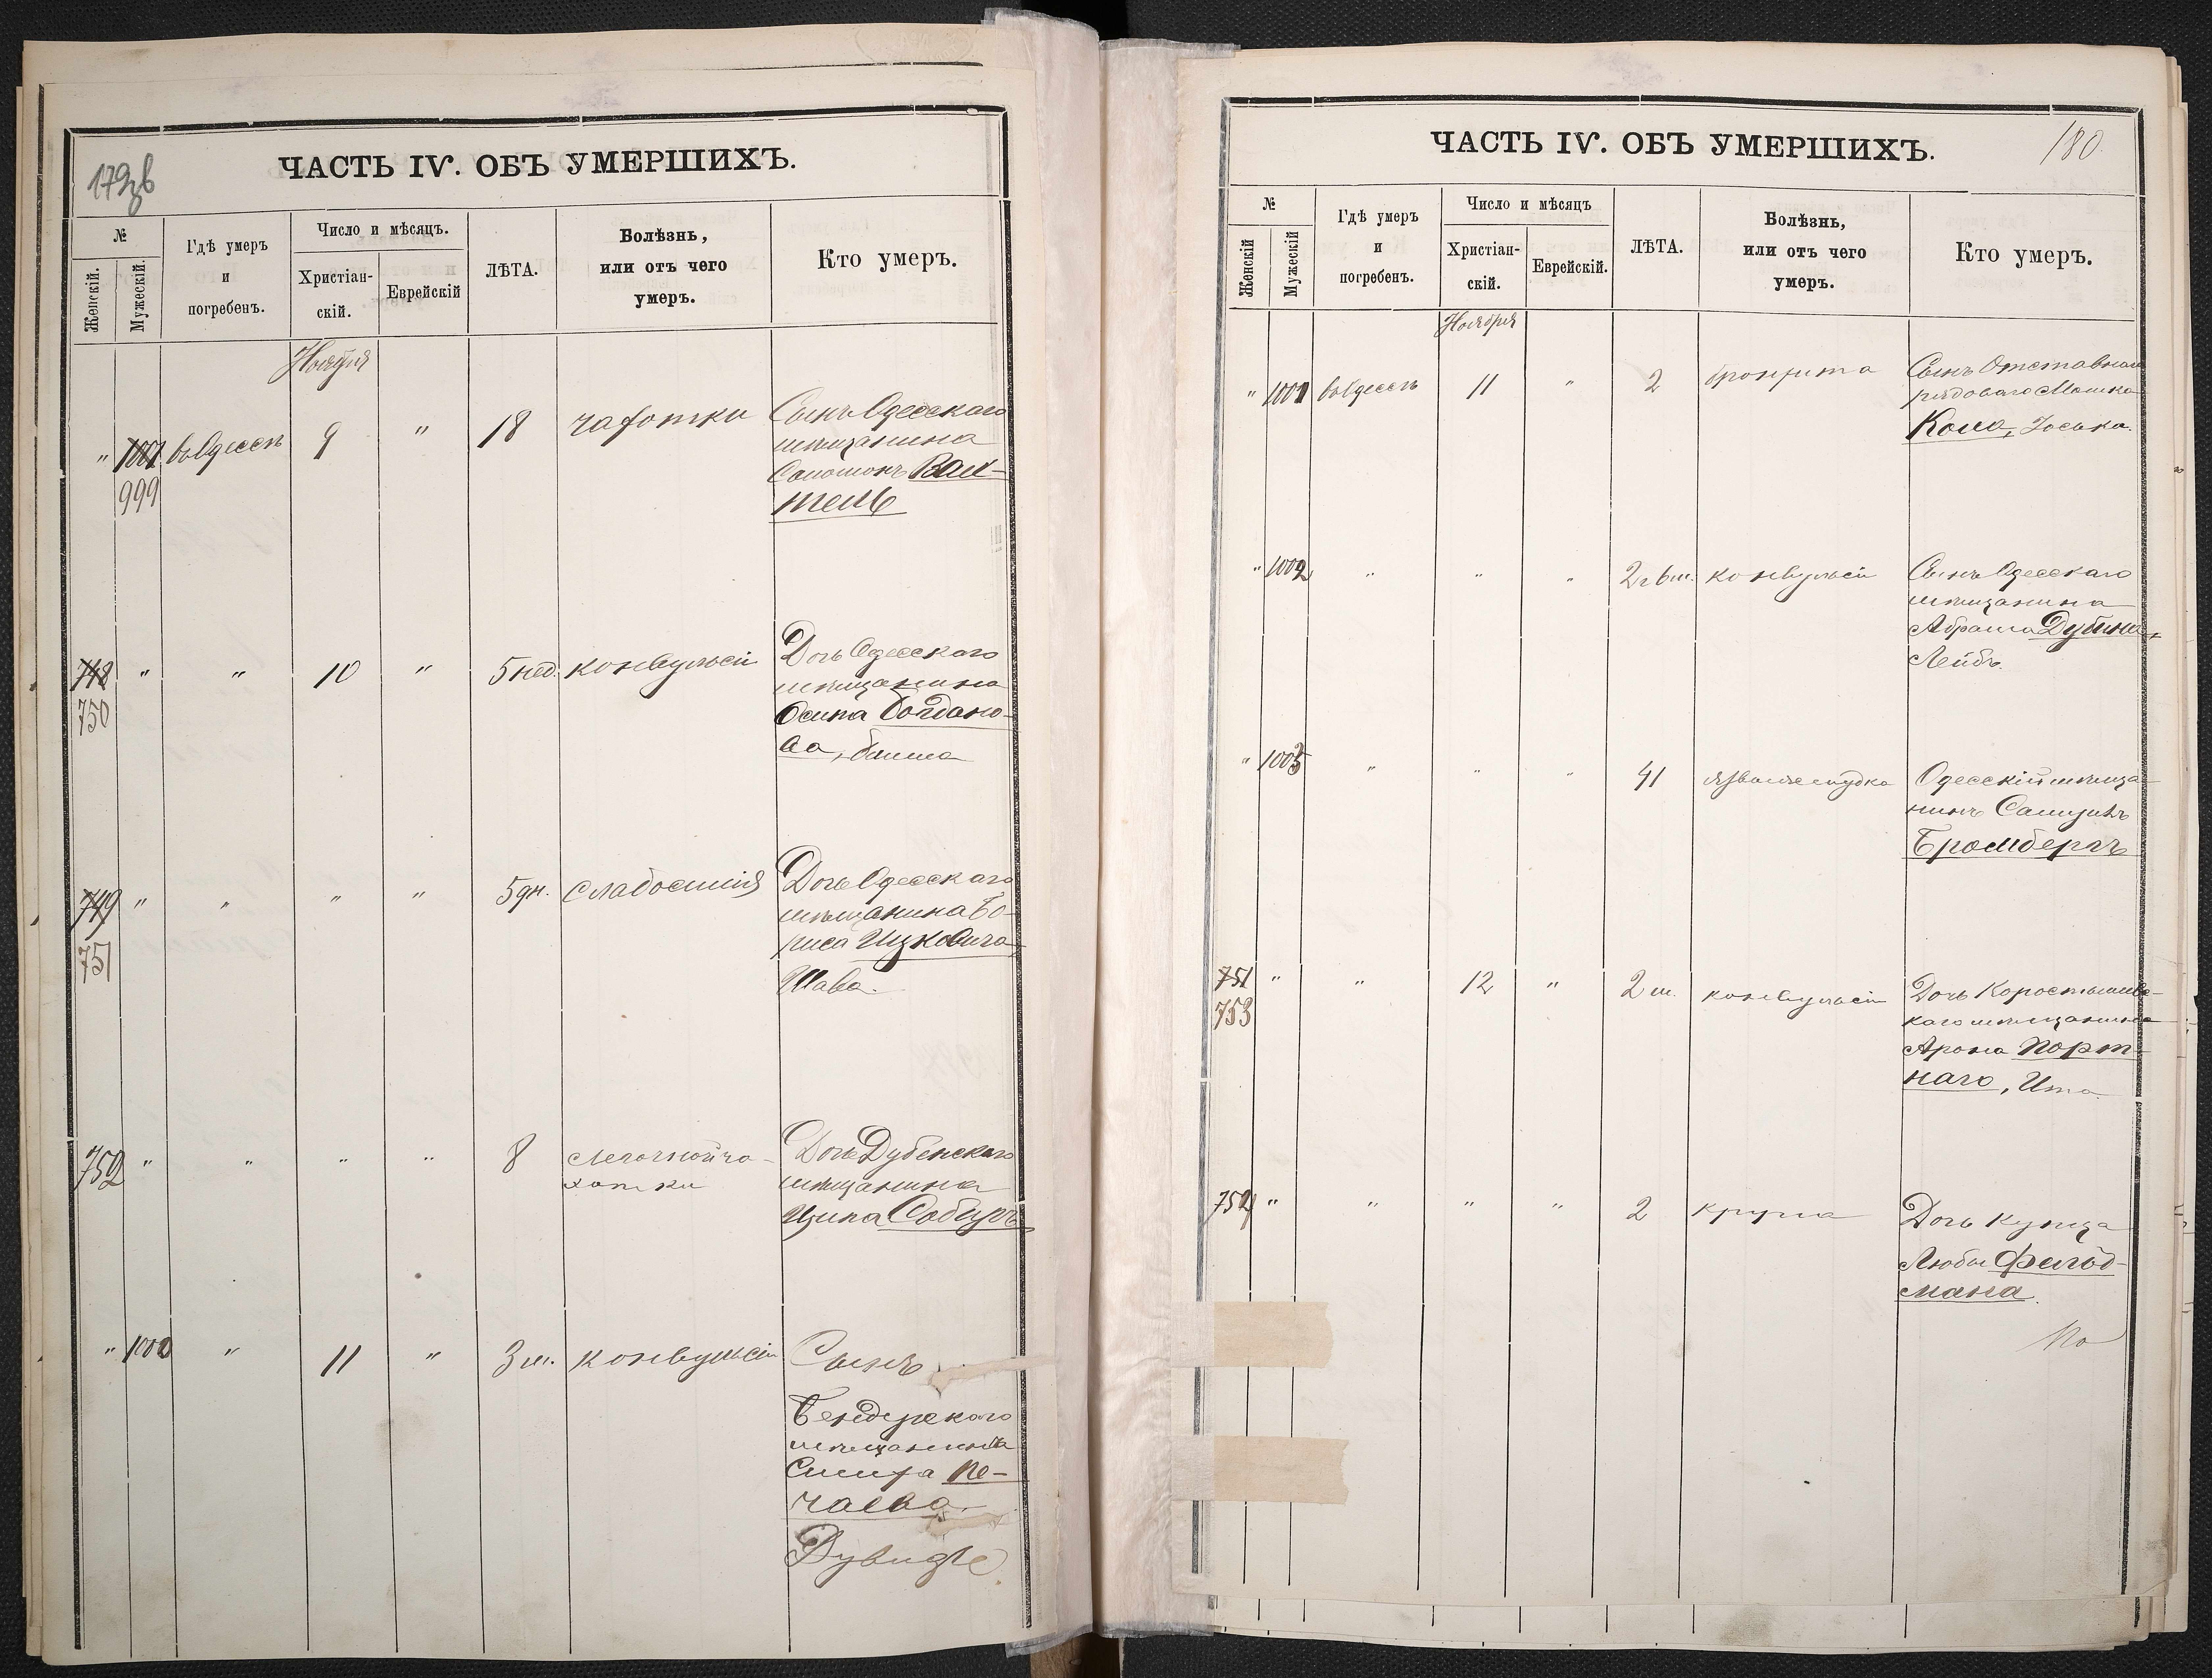 179 зв
ЧАСТЬ IV. ОБЪ УМЕРШИХЪ.
№
Женскій.
Мужескій.
Гдѣ умеръ
и
погребенъ.
Число и мѣсяцъ.
Христіан-
скій.
Еврейскій
ЛѢТА.
Болѣзнь,
или отъ чего
умеръ.
Кто умеръ.
Ноября
" 1001 въ Одессѣ 9 " 18 чахотки Сынъ Одесскаго
999
мѣщанина
Соломонъ Вах-
тель
748 " " 10 " 5 нед. конвульсіи Дочь Одесскаго
750
мѣщанина
Осипа Богдано-
ва,
749 " " " " 5 дн. слабостія Дочь Одесскаго
751
мѣщанина Бо-
риса Ицковича
Шава.
752 " " " " 8 легочной ча-
хотки
Дочь Дубенскаго
мѣщанина
Ципа
" 1000 " 11 " 3 м. конвульсіи Сынъ
Бендерскаго
мѣщанина
Смиха Не-
чаева
Дувидъ
180.
ЧАСТЬ IV. ОБЪ УМЕРШИХЪ.
№
Женскій
Мужескій
Гдѣ умеръ
и
погребенъ.
Число и мѣсяцъ
Христіан-
скій.
Еврейскій.
ЛѢТА.
Болѣзнь,
или отъ чего
умеръ.
Кто умеръ.
Ноября
" 1001 въ Одессѣ 11 " 2 бронхита Сынъ Отставнаго
рядоваго Мошка
Кона, Іоська.
" 1002 " " " 2 г 6 м. конвульсіи Сынъ Одесскаго
мѣщанина
Абрама Дубина,
Лейбъ.
" 1003 " " " 41 язвы желудка Одесскій мѣща-
нинъ Самуилъ
Бромбергъ
751 " " 12 " 2 м. конвульсіи Дочь Коростышевс-
753
каго мѣщанина
Арона Порт-
наго, Ита.
754 " " " " 2 крупа Дочь купца
Любы Фельд-
мана.
По